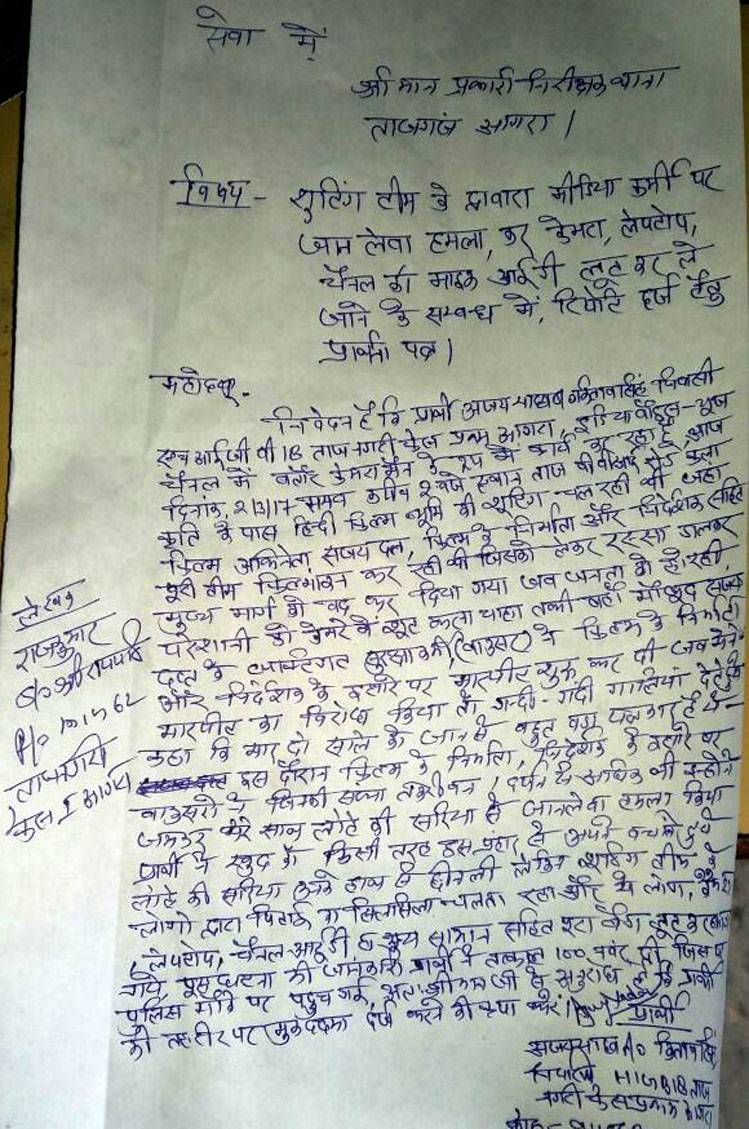 सेवा में
श्री मान प्रभारी निरीक्षक थाना
ताजगंज आगरा।
विषय - शूटिंग टीम के द्वावारा मीडिया कर्मी पर
जान लेवा हमला, कर कैमरा, लेपटोप,
चैनल की माइक आईडी लूट कर ले
जाने के सम्बन्ध में, रिपोर्ट दर्ज हेतु
प्रार्थना पत्र।
महोदय,
निवेदन है कि प्रार्थी अजय
एच आई जी बी 18 ताज नगरी फेज प्रथम आगरा, इंडिया
चैनल में बतौर कैमरा मैन के रूप में कार्य कर रहा है, आज
दिनांक, 2/3/17 समय करीब 2 बजे स्थान ताज रोड कला
कृति के पास हिंदी फिल्म भूमि की शूटिंग चल रही थी जहा
फिल्म अभिनेता संजय दत्त, फिल्म के निर्माता और निर्देशक सहित
पूरी टीम फिल्मांकन कर रही थी जिसको लेकर रस्सा डालकर
मुख्य मार्ग को बंद कर दिया गया जब जनता को हो रही
परेशानी को कैमरे में शूट करना चाहा तभी वहाँ मौजूद संजय
दत्त के व्यक्तिगत सुरक्षाकर्मी, (बाउंसर) ने फिल्म के निर्माता
और निर्देशक के इशारे पर मारपीट शुरू कर दी जब मैंने
मारपीट का विरोध किया तो गन्दी-गंदी गालियां देते हुये
कहा कि मार दो साले को जान से बहुत बड़ा पत्रकार है ये
इस दौरान फिल्म के निर्माता, निर्देशक के इशारे पर
बाउंसरो ने जिनकी संख्या तकरीबन, दर्जन से अधिक थी इन्होंने
जमकर मेरे साथ लोहे की सरिया से जानलेवा हमला किया
प्रार्थी ने खुद को किसी तरह इस प्रहार से अपने बचाव हुये
लोहे की सरिया उनके हाथ से छीनली लेकिन शूटिंग टीम के
लोगो द्वारा पिटाई का सिलसिला चलता रहा और ये लोग, कैमरा
, लेपटोप, चैनल आईडी व अन्य सामान सहित पूरा बैग लूट कर
गये, इस घटना की जानकारी प्रार्थी ने तत्काल 100 नंबर दी जिस पर
पुलिस मौके पर पहुच गई, अतः श्रीमान जी से अनुरोध है कि प्रार्थी
की तहरीर पर मुकदद्मा दर्ज करने की कृपा करें।
प्रार्थी
अजय S/O
निवासी HIG B 18 ताज
नगरी फेस प्रथम आगरा
लेखक
राजकुमार
S/o श्री
R/o
ताजनगरी
फेस I आगरा